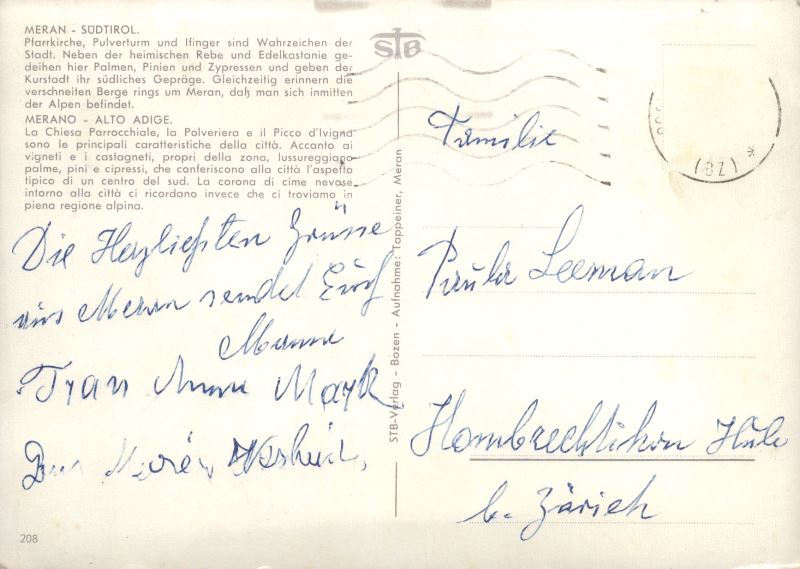 MERAN - SÜDTIROL.
Pfarrkirche, Pulverturm und Ifinger sind Wahrzeichen der
Stadt. Neben der heimischen Rebe und Edelkastanie ge-
deihen hier Palmen, Pinien und Zypressen und geben der
Kurstadt ihr südliches Gepräge. Gleichzeitig erinnern die
verschneiten Berge rings um Meran, daß man sich inmitten
der Alpen befindet.
MERANO - ALTO ADIGE.
La Chiesa Parrocchiale, la Polveriera e il Picco d'Ivigna
sono le principali caratteristiche della città. Accanto ai
vigneti e i castagneti, propri della zona, lussureggiano
palme, pini e cipressi, che conferiscono alla città l'aspetto
tipico di un centro del sud. La corona di cime nevose
intorno alla città ci ricordano invece che ci troviamo in
piena regione alpina.
Die Herzliehsten Grüsse
aus Meran sendet Euch
Mama
Frau Anna
208
STB
STB-Verlag - Bozen - Aufnahme: Tappeiner, Meran
(BZ) *
Familie
Paula Leeman
Hombrechtikon
b. Zürich